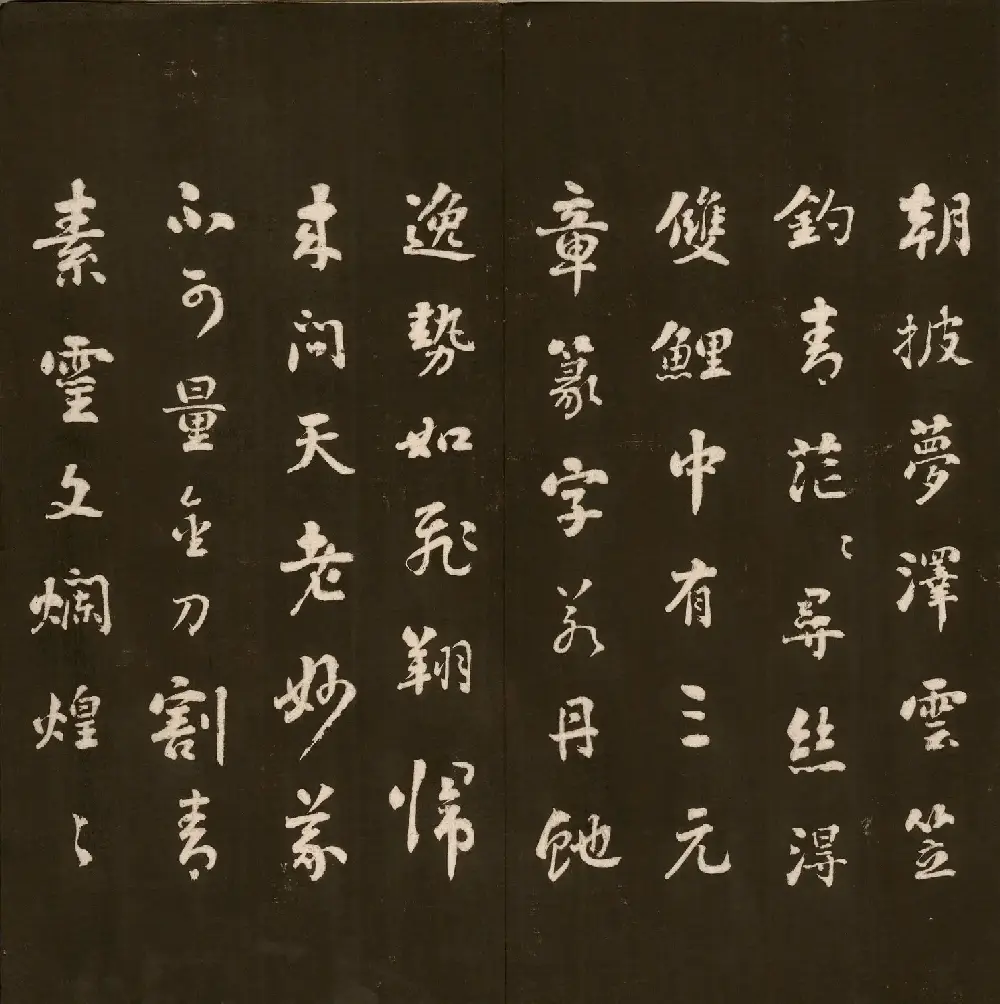 朝披夢澤雲笠
釣青茫〻尋絲得
雙鯉中有三元
章篆字若丹虵
逸勢如飛翔歸
來問天老妙義
不可量金刀割青
素靈文爛煌〻